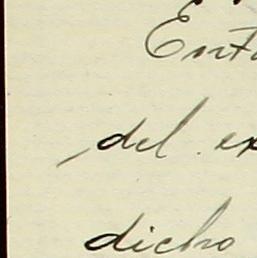 Ent
del ex
dicho